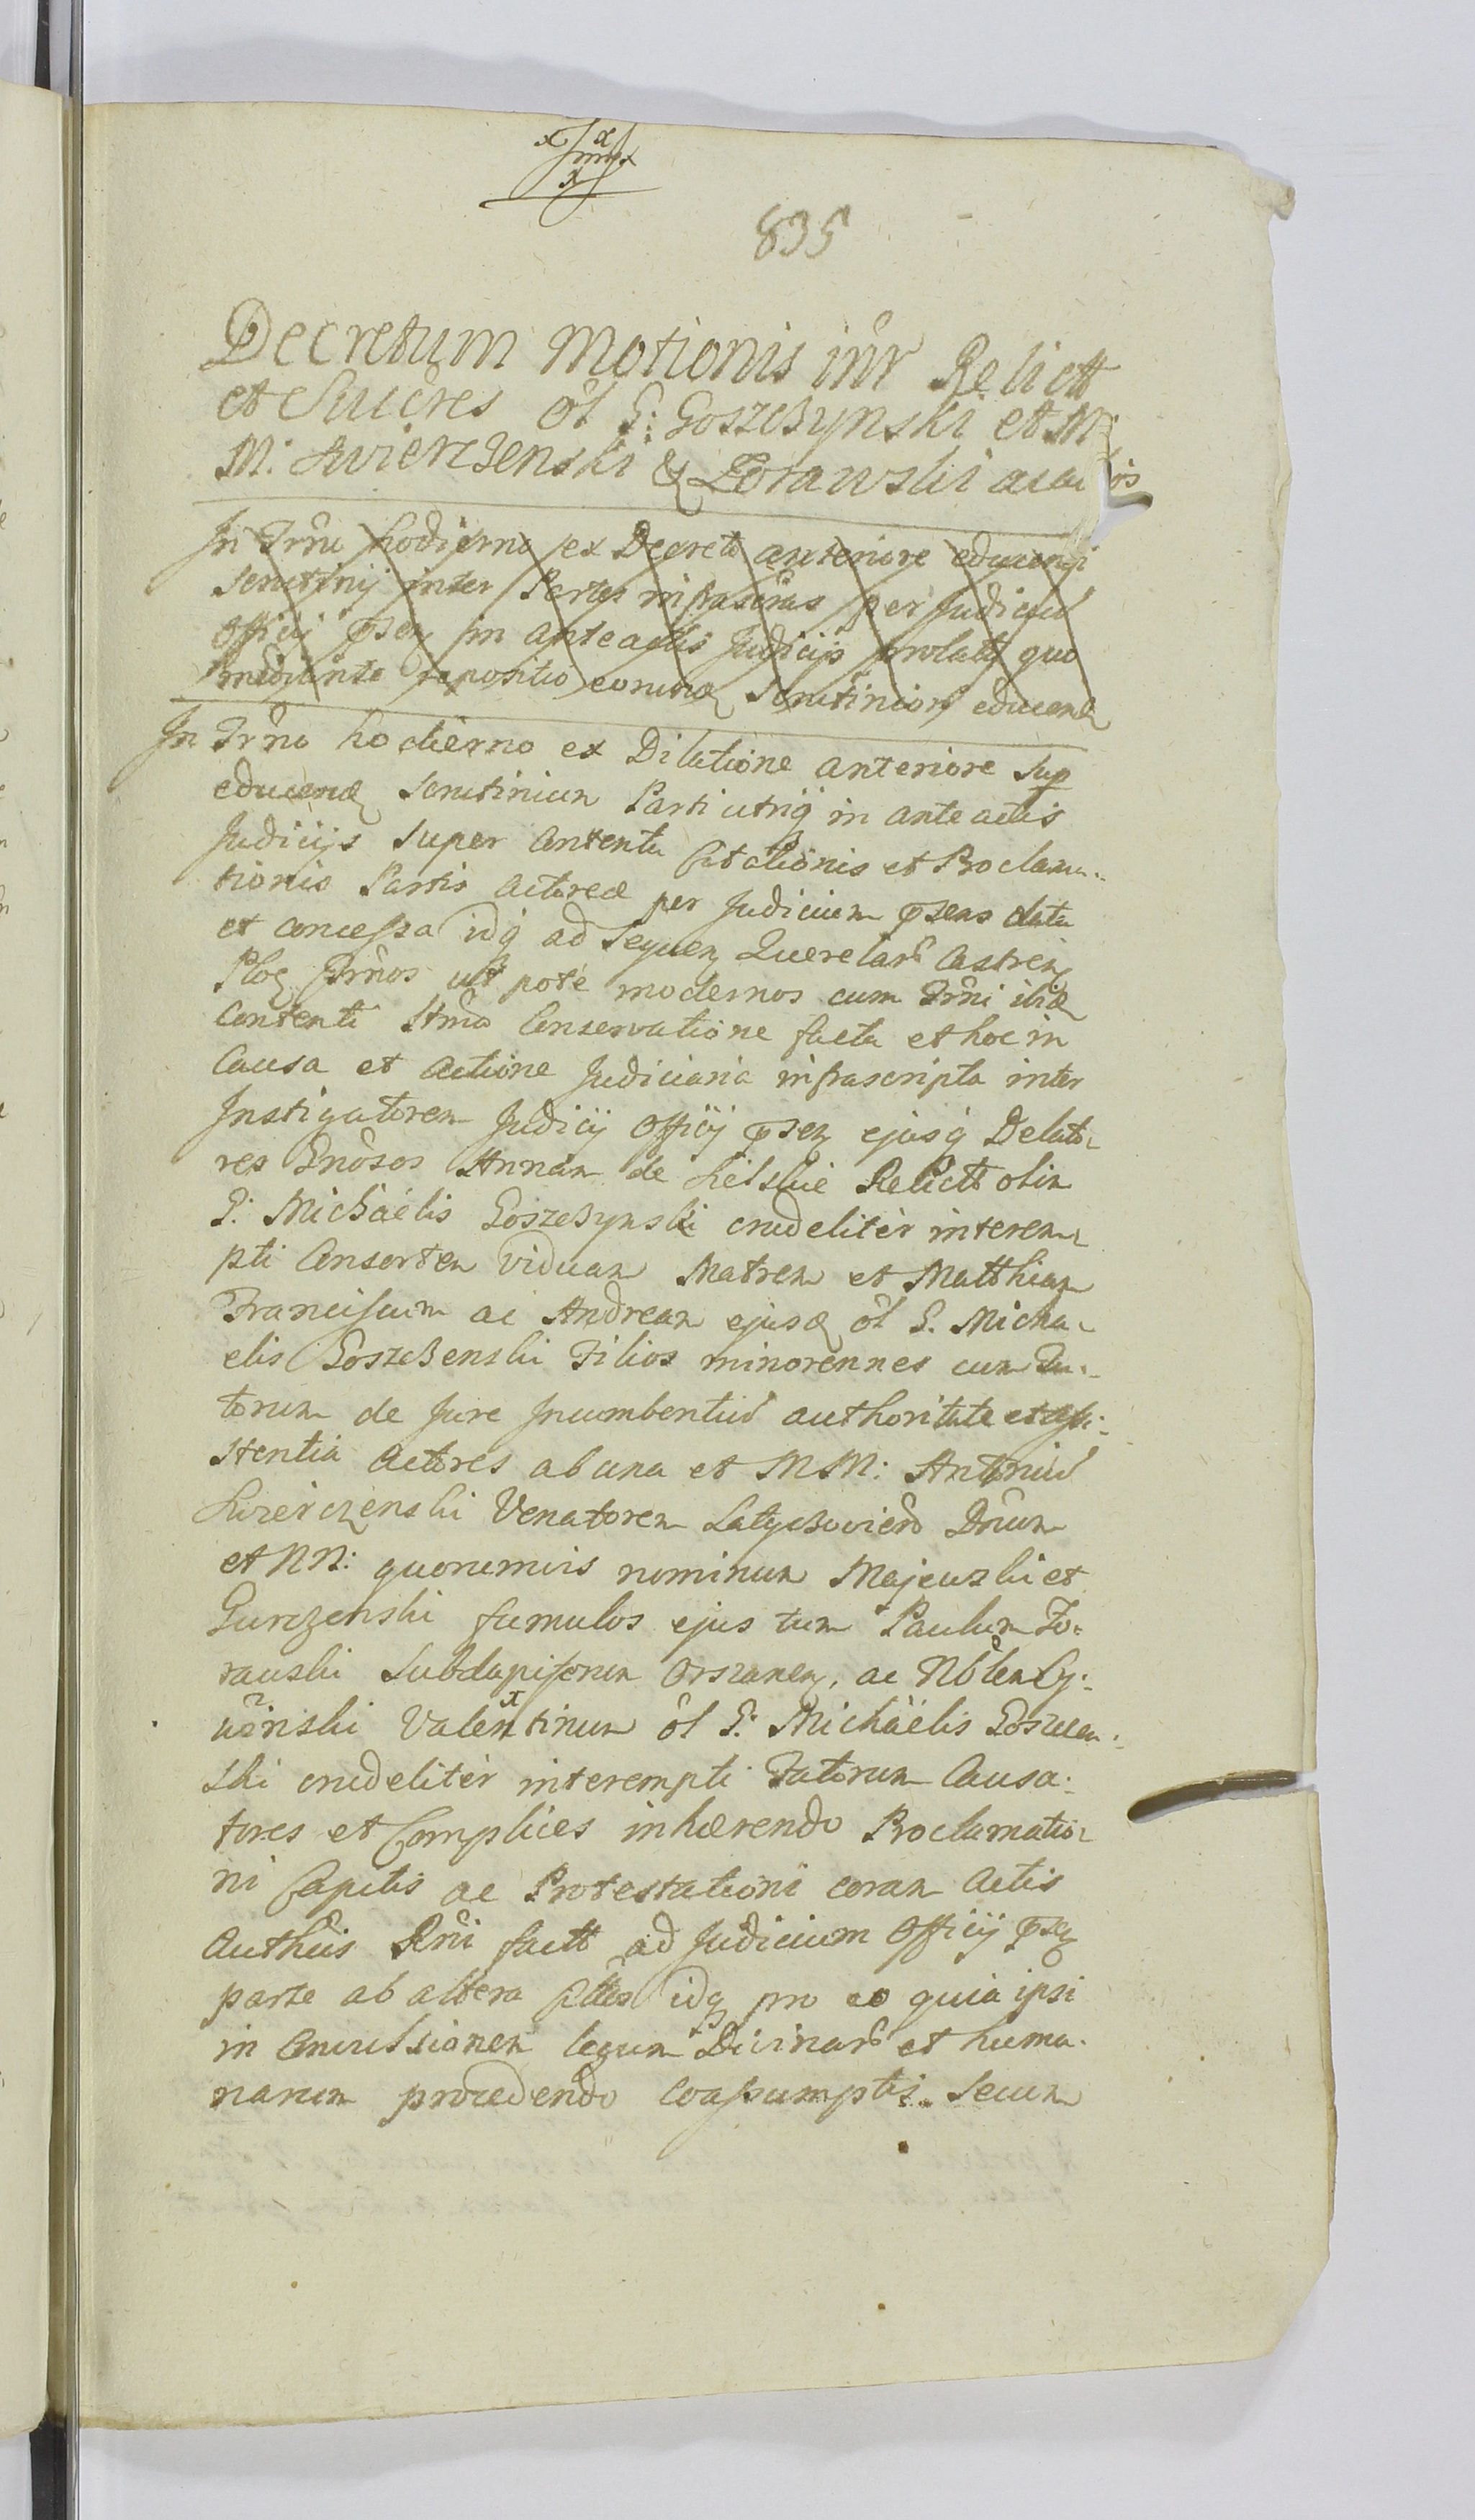 835
Decretum Motionis inr̃ Relictt
et Succres ol G: Goszczynski et M:
M: Swierczenski & Zorawski acac is
In Trño hodierno ex Decreto anteriore educendi
Scrutinij inter Partes infrascrãs per Judiciũ
Officij pseñ in anteactis Judicijs prolato quo
mediante repositio eorund Scrutiniorũ educend
In Trño hodierno ex Dilatione anteriore sup
educend Scrutinium Parti utriq in anteactis
Judicijs super Contenta Citationis et Proclama..
tionis Partis Actoreæ per Judicium psens data
et concessa idq ad sequen Querelarũ Castren
Ploc Trños ut pote modernos cum Trñi ibid
Contenti Attnta Conservatione facta et hoc in
Causa et Actione Judiciaria infrascripta inter
Instigatorem Judicij Officij psen ejusq Delato-
res Gnosos Annam de Lelskie Relictt olim
G: Michaëlis Goszczynski crudelitèr interem-
pti Consortem Viduam Matrem et Matthiam
Franciscum ac Andream ejusd ol G. Micha-
elis Goszczenski Filios minorennes cum Tu..
torum de Jure Incumbentiũ authoritate et assi:
stentia Actores ab una et MM: Antoniũ
Swierczenski Venatorem Latyczoviens̃ Dnum
et NN: quorumvis nominum Majewski et
Gurczenski famulos ejus tum Paulum Zo-
rawski Subdapiferum Orszanen, ac Nblem Cy:
winski Valentinum ol G: Michaëlis Goszczen:
ski crudelitèr interempti Fatorum Causa:
tores et Complices inhærendo Proclamatio-
ni Capitis ac Protestationi coram Actis
Authẽis Rñi factt ad Judicium Officij psen
parte ab altera Cittos idq pro eo quia ipsi
in Convulsionem legum Divinarũ et huma.
narum procedendo coassumptis.. secum